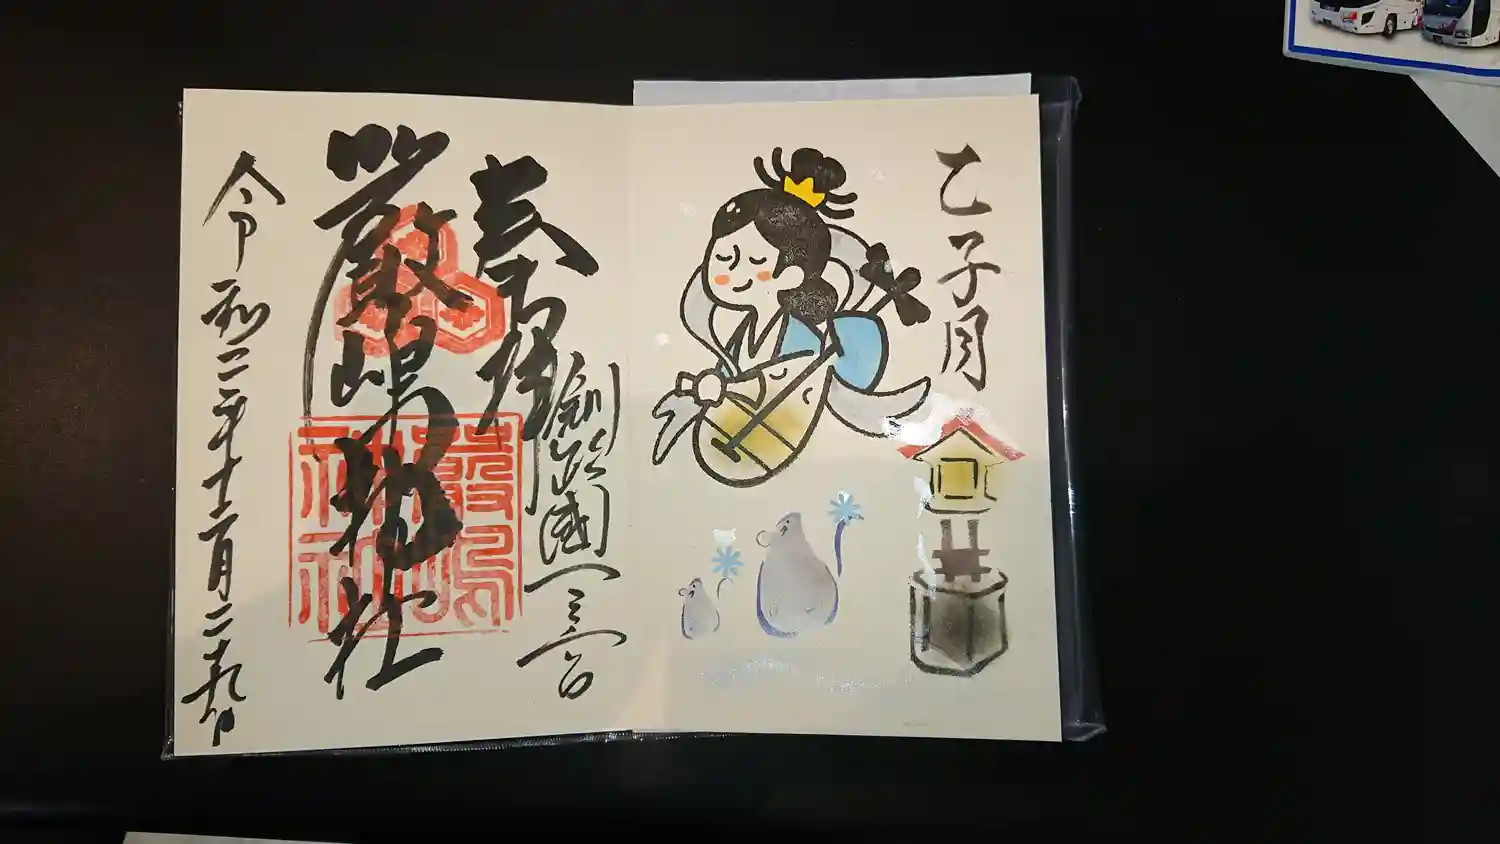 乙子月
奉拝
釧路國一之宮
厳嶋神社
厳嶋
神社
令和二年十二月二十九日